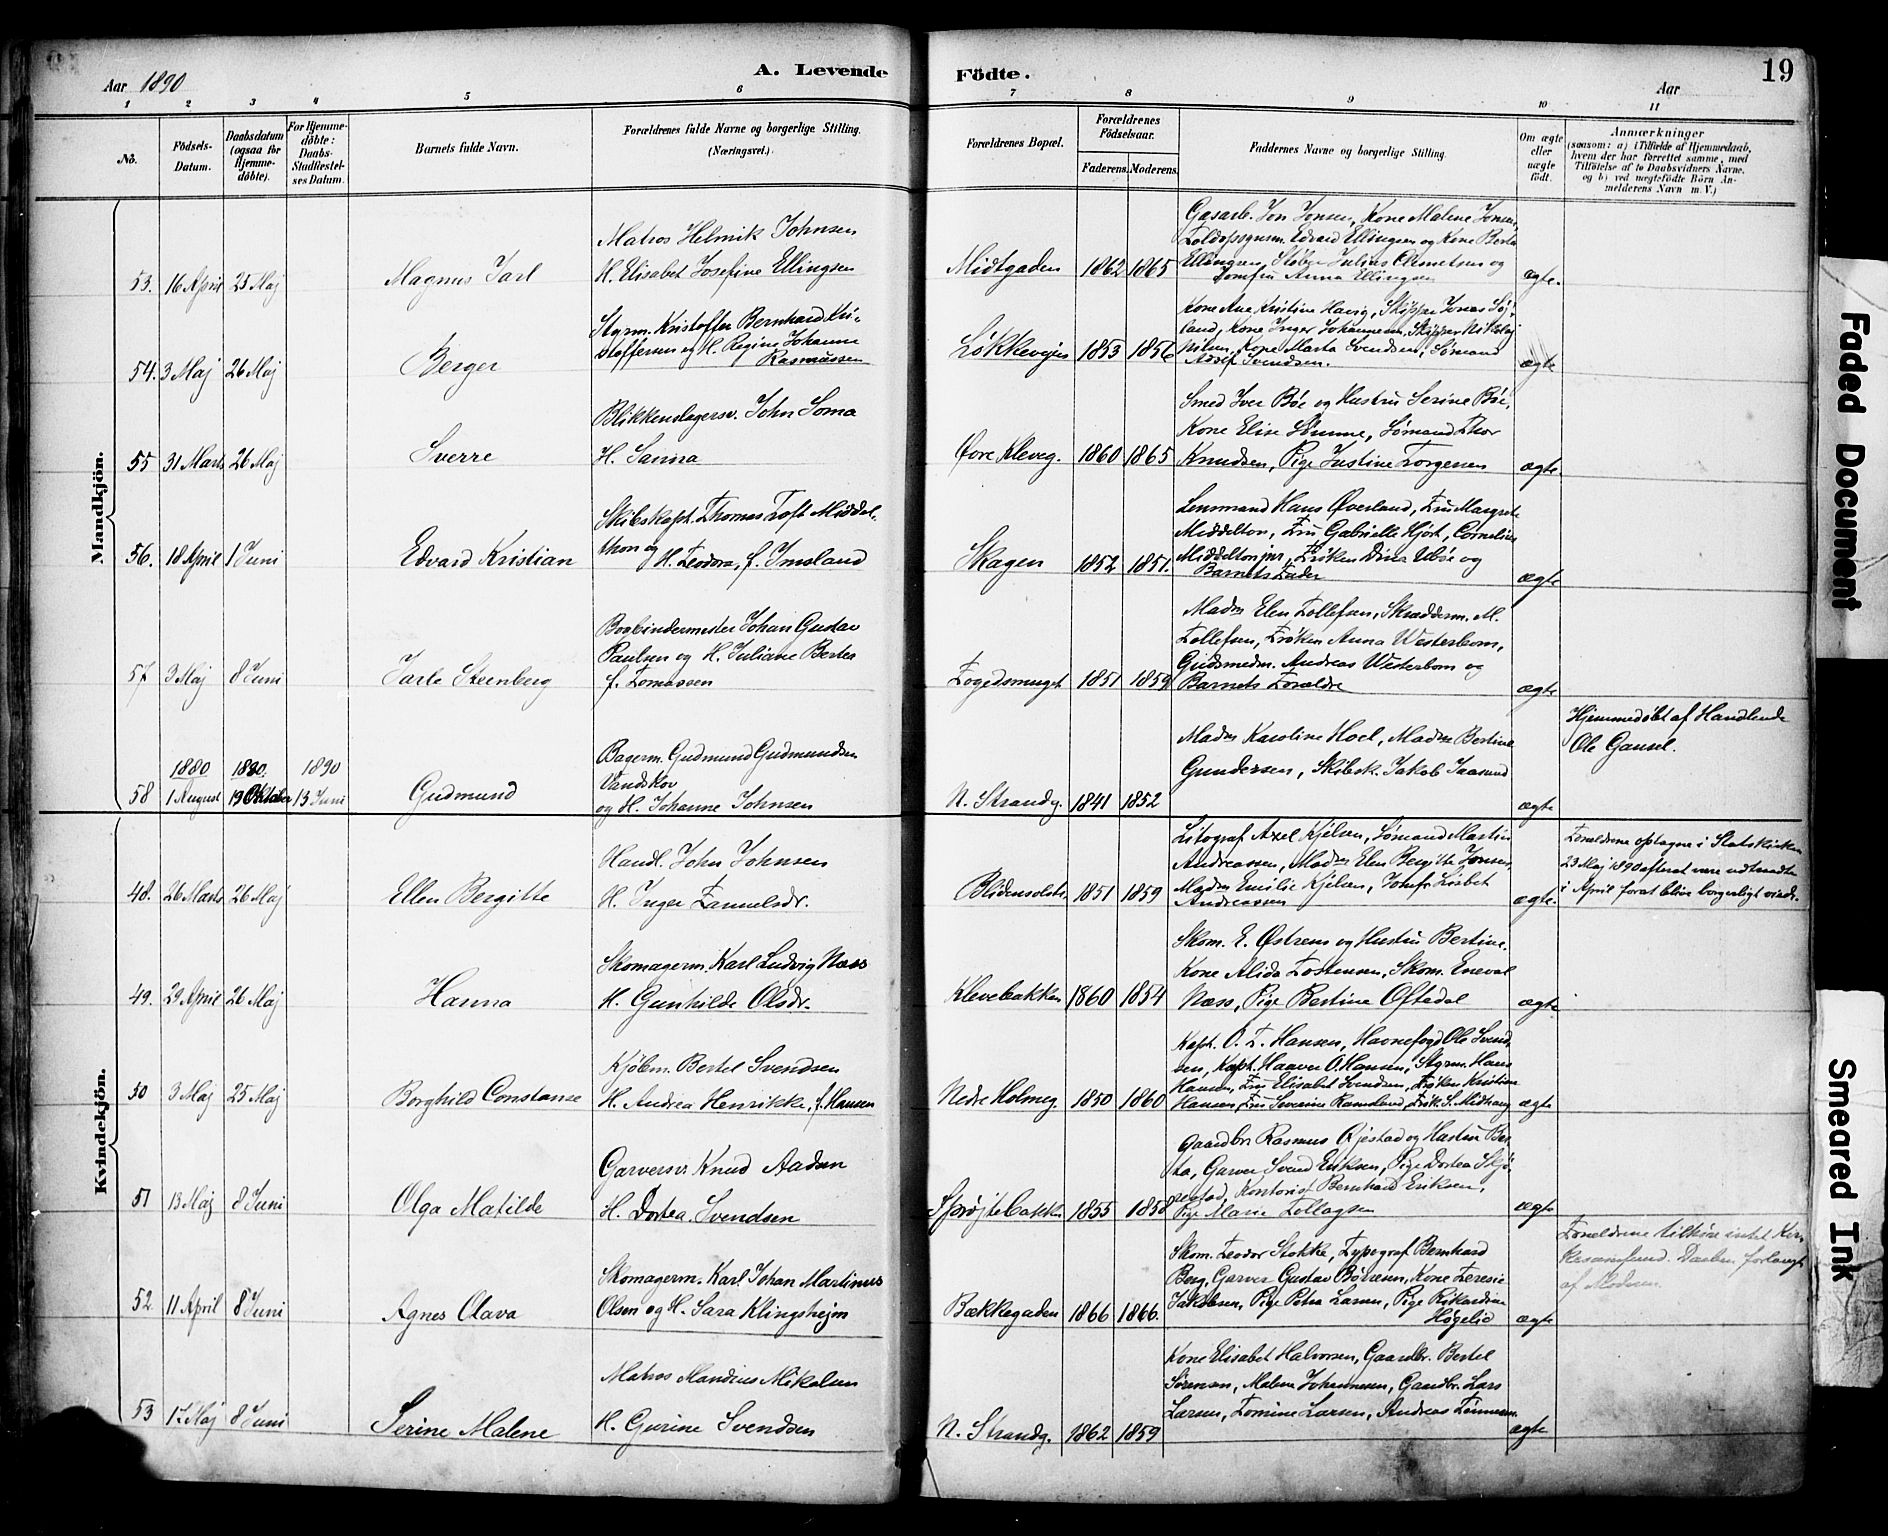 Aar 1890
A. Levende
Födte.
Aar
19
1 2 3 4 5 6 7 8 9 10 11
No.
Födsels-
Datum.
Daabsdatum
(ogsaa for
Hjemme-
döbte).
For Hjemme-
döbte:
Daabs-
Stadfæstel-
ses Datum.
Barnets fulde Navn.
Forældrenes fulde Navne og borgerlige Stilling.
(Næringsvei.)
Forældrenes Bopæl.
Forældrenes
Födselsaar.
Faderens. Moderens.
Faddernes Navne og borgerlige Stilling.
Om ægte
eller
uægte
født.
Anmærkninger
(saasom: a) i Tilfælde af Hjemmedaab,
hvem der har forrettet samme, med
Tilföielse af to Daabsvidners Navne,
og b) ved uægtefödte Börn An-
melderens Navn m.V.)
Mandkjön.
53. 16 April 25 Maj
Magnus Jarl
Matros Helmik Johnsen
H. Elisabet Josefine Ellingsen
Midtgaden 1862 1865
Gasarb. Jon Jonsen, Kone Malene Jonsen,
Toldopsynsm. Edvard Ellingsen og Kone Berta
Ellingsen, Støber Julius Asmetsen og
Jomfru Anna Ellingsen
ægte.
54. 3 Maj 26 Maj
Berger
Styrm. Kristoffer Bernhard Kri-
stoffersen og H. Regine Johanne
Rasmussen
Løkkevejen 1853 1856
Kone Ane Kristine Havig, Skipper Jonas Sø-
land, Kone Inger Johannesen, Skipper Nikolaj
Nilsen, Kone Marta Svendsen, Sømand
Adolf Svendsen.
ægte
55 31 Marts 26 Maj
Sverre
Blikkenslagersv. John Soma
H. Sanna
Øvre Kleveg. 1860 1865
Smed Iver Bøe og Hustru Serine Bøe,
Kone Elise Sømme, Sømand Thor
Knudsen, Pige Justine Torgersen
ægte.
56. 18 April 1 Juni
Edvard Kristian
Skibskapt. Thomas Toft Middel-
thon og
H. Teodora, f. Imsland
Skagen 1852 1851.
Lensmand Hans Øverland, Fru Margrete
Middelton, Fru Gabrielle Hjort, Cornelius
Middelton jnr, Frøken Dina Uböe og
Barnets Fader
ægte
57 3 Maj 8 Juni
Jarle Steenberg
Bogbindermester Johan Gustav
Paulsen og H. Juliane Bertea
f. Tomassen
Fogedsmuget 1851 1859
Madm Elen Tollefsen, Skrædderm. M.
Tollefsen, Frøken Anna Westerbom,
Guldsmedm. Andreas Westerbom og
Barnets Forældre
ægte
1880 1880. 1890
58 1 August 19 Oktober 13 Juni
Gudmund
Bagerm. Gudmund Gudmundsen
Vandskov
og H. Johanne Johnsen
N. Strandg. 1841 1852
Madm Karoline Hoel, Madm Bertine
Gundersen, Skibsk. Jakob Jaasund
ægte
Hjemmedøbt af Handlende
Ole Gausel.
Kvindekjön.
48. 26 Marts 26 Maj
Ellen Bergitte
Handl. John Johnsen
H. Inger Samuelsdr.
Blidensolstr. 1851 1859
Litograf Axel Kjelsen, Sømand Martin
Andreassen, Madm Elen Bergitte Jonsen,
Madm Emilie Kjelsen, Jomfr Lisbet
Andreassen
ægte.
Forældrene optagne i Statskirken
23 Maj 1890 efterat være udtraadte
i April forat blive borgerligt viede.
49. 29 April 26 Maj
Hanna
Skomagerm. Karl Ludvig Næss
H. Gunhilde Olsdr.
Klevebakken 1860 1854
Skom. E. Østrem og Hustru Bertine.
Kone Alida Tostensen, Skom. Eneval
Næss, Pige Bertine Oftedal
ægte
50 3 Maj 25 Maj
Borghild Constanse
Kjøbm. Bertel Svendsen
H. Andrea Henrikke, f. Hansen
Nedre Holmeg. 1850 1860
Kapt. O. T. Hansen, Havnefogd Ole Svend-
sen, Kapt. Haaver O. Hansen, Styrm. Hans
Hansen, Fru Elisabet Svendsen, Frøken Kristine
Hansen, Fru Severine Ramsland, Frøk. S. Midthaug
ægte
51 13 Maj 8 Juni
Olga Matilde
Garversv Knud Aadsen
H. Dortea Svendsen
Sprøjtebakken 1855 1858
Gaardbr Rasmus Gjestad og Hustru Ber-
ta, Garver Svend Eriksen, Pige Dortea Skjø-
restad, Kontorist Bernhard Eriksen,
Pige Marie Tollagsen
ægte
52 11 April 8 Juni
Agnes Olava
Skomagerm. Karl Johan Martinus
Olsen og H. Sara Klingsheim
Bækkegaden 1866 1866.
Skom. Teodor Stokke, Typograf Bernhard
Berg, Garver Gustav Børresen, Kone Teresie
Jakobsen, Pige Petra Larsen, Pige Rikardine
Høgelid
ægte
Forældrene tilhøre intet Kir-
kesamfund. Daaben forlangt
af Moderen.
53 17 Maj 8 Juni
Serine Malene
Matros Mandius Mikalsen
H. Gurine Svendsen
N. Strandg. 1862 1859
Kone Elisabet Halvorsen, Gaardbr. Bertel
Sørensen, Malene Johannesen, Gaardbr. Lars
Larsen, Tomine Larsen, Andreas Tønnesen
ægte
Faded Document
Smeared Ink